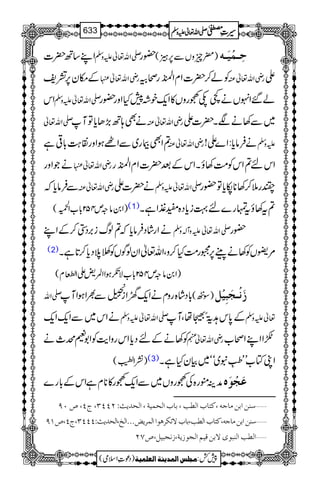 سیرتِ مصطفیٰ صلی اللہ تعالیٰ علیہ وسلم 633
حِمْیَہ (مضر چیزوں سے پرہیز) حضور صلی اللہ تعالیٰ علیہ وسلم اپنے ساتھ حضرت
علی رضی اللہ تعالیٰ عنہ کو لے کر حضرت ام المنذر صحابیہ رضی اللہ تعالیٰ عنہا کے مکان پر تشریف
لے گئے انہوں نے پکی پکی کھجوروں کا ایک خوشہ پیش کیا اور حضور صلی اللہ تعالیٰ علیہ وسلم اس
میں سے کھانے لگے۔ حضرت علی رضی اللہ تعالیٰ عنہ نے بھی ہاتھ بڑھایا تو آپ صلی اللہ تعالیٰ
علیہ وسلم نے فرمایا: اے علی! رضی اللہ تعالیٰ عنہ تم ابھی بیماری سے اٹھے ہو اور نقاہت باقی ہے
اس لئے تم اس کو مت کھاؤ۔ اس کے بعد حضرت ام المنذر رضی اللہ تعالیٰ عنہا نے جَو اور
چقندر ملا کر کھانا پکایا تو حضور صلی اللہ تعالیٰ علیہ وسلم نے حضرت علی رضی اللہ تعالیٰ عنہ سے فرمایا کہ
یہ کھاؤ یہ تمہارے لئے بہت زیادہ مفید غذا ہے۔ (1) (ابن ماجہ ص۲۵۴ باب الحمیہ)
حضور صلی اللہ تعالیٰ علیہ وآلہ وسلم نے ارشاد فرمایا کہ تم لوگ زبردستی کر کے اپنے
مریضوں کو کھانے پینے پر مجبور مت کیا کرو، اللہ تعالیٰ ان لوگوں کو کھلا پلا دیا کرتا ہے۔ (2)
(ابن ماجہ ص۲۵۴ باب لا تکرہوا المریض علی الطعام)
زَنْجَبِیْل (سونٹھ) بادشاہ روم نے ایک گھڑا زنجبیل سے بھرا ہوا آپ صلی اللہ
تعالیٰ علیہ وسلم کے پاس ہدیۃً بھیجا تھا، آپ صلی اللہ تعالیٰ علیہ وسلم نے اس میں سے ایک ایک
ٹکڑا اپنے اصحاب رضی اللہ تعالیٰ عنہم کو کھانے کے لئے دیا اس روایت کو ابو نعیم محدث نے
اپنی کتاب ’’طب نبوی‘‘ میں بیان کیا ہے۔ (3) (نشر الطیب)
عَجْوَہ مدینہ منورہ کی کھجوروں میں سے ایک کھجور کا نام ہے اس کے بارے
1 سنن ابن ماجہ، کتاب الطب ، باب الحمیة ، الحدیث: ۳۴۴۲، ج۴، ص ۹۰
2 سنن ابن ماجہ، کتاب الطب، باب لاتکرھوا المریض...الخ، الحدیث: ۳۴۴۴، ج۴، ص۹۱
3 الطب النبوی لابن قیم الجوزیة، زنجبیل، ص۲۷
پیش کش: مجلس المدینة العلمیة (دعوتِ اسلامی)